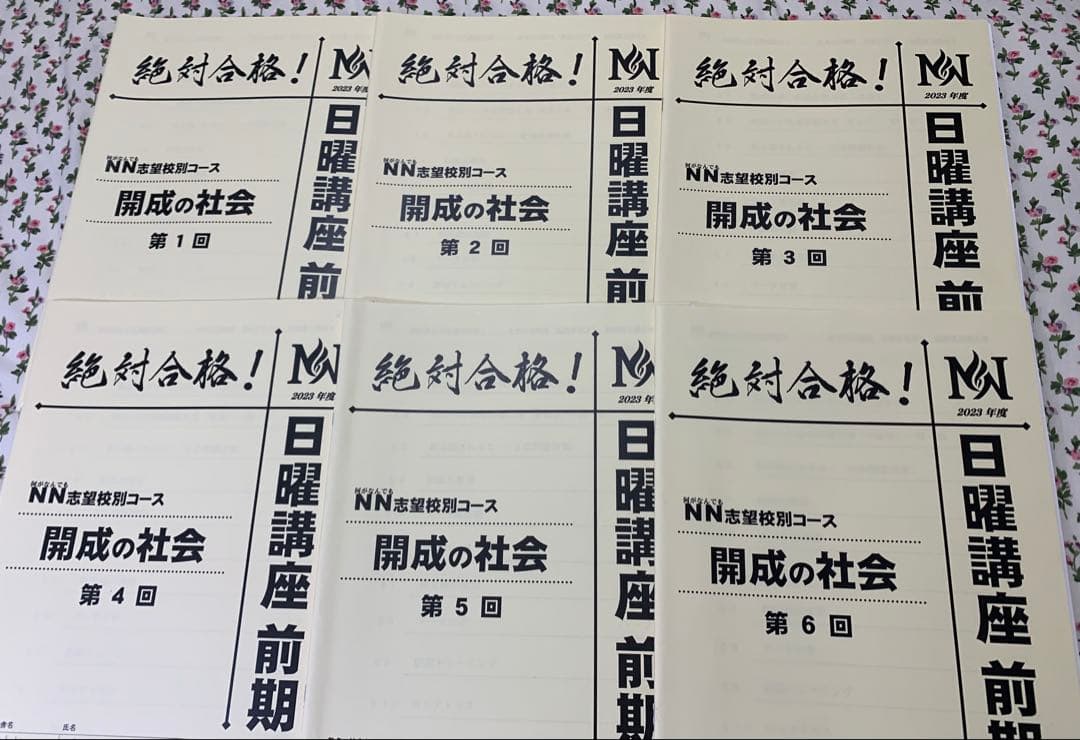 絶対合格!
NN
2023 年度
日曜講座 前
何がなんでも
NN志望校別コース
開成の社会
第 1 回
絶対合格!
NN
2023 年度
日曜講座 前
何がなんでも
NN志望校別コース
開成の社会
第 2 回
絶対合格!
NN
2023 年度
日曜講座 前
何がなんでも
NN志望校別コース
開成の社会
第 3 回
絶対合格!
NN
2023 年度
日曜講座 前期
何がなんでも
NN志望校別コース
開成の社会
第 4 回
舎名
氏名
絶対合格!
NN
2023 年度
日曜講座 前期
何がなんでも
NN志望校別コース
開成の社会
第 5 回
絶対合格!
NN
2023 年度
日曜講座 前期
何がなんでも
NN志望校別コース
開成の社会
第 6 回